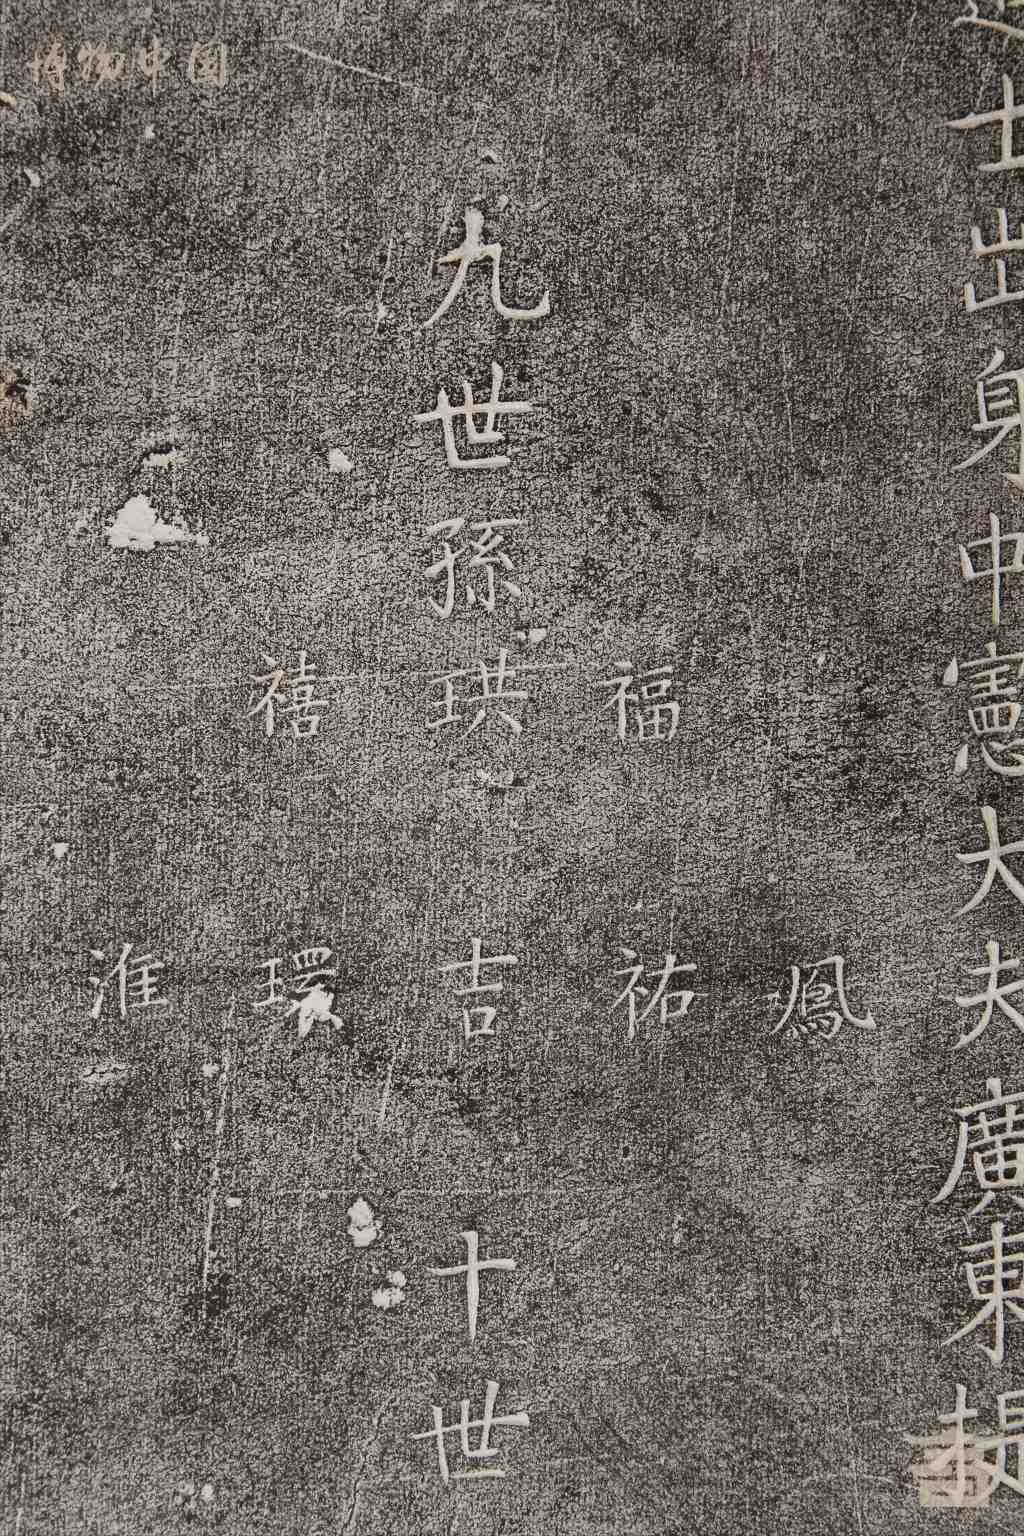 博物中国
士出身中憲大夫廣東提
九世孫
福 珙 禧
鳳 祐 吉 環 淮
十世